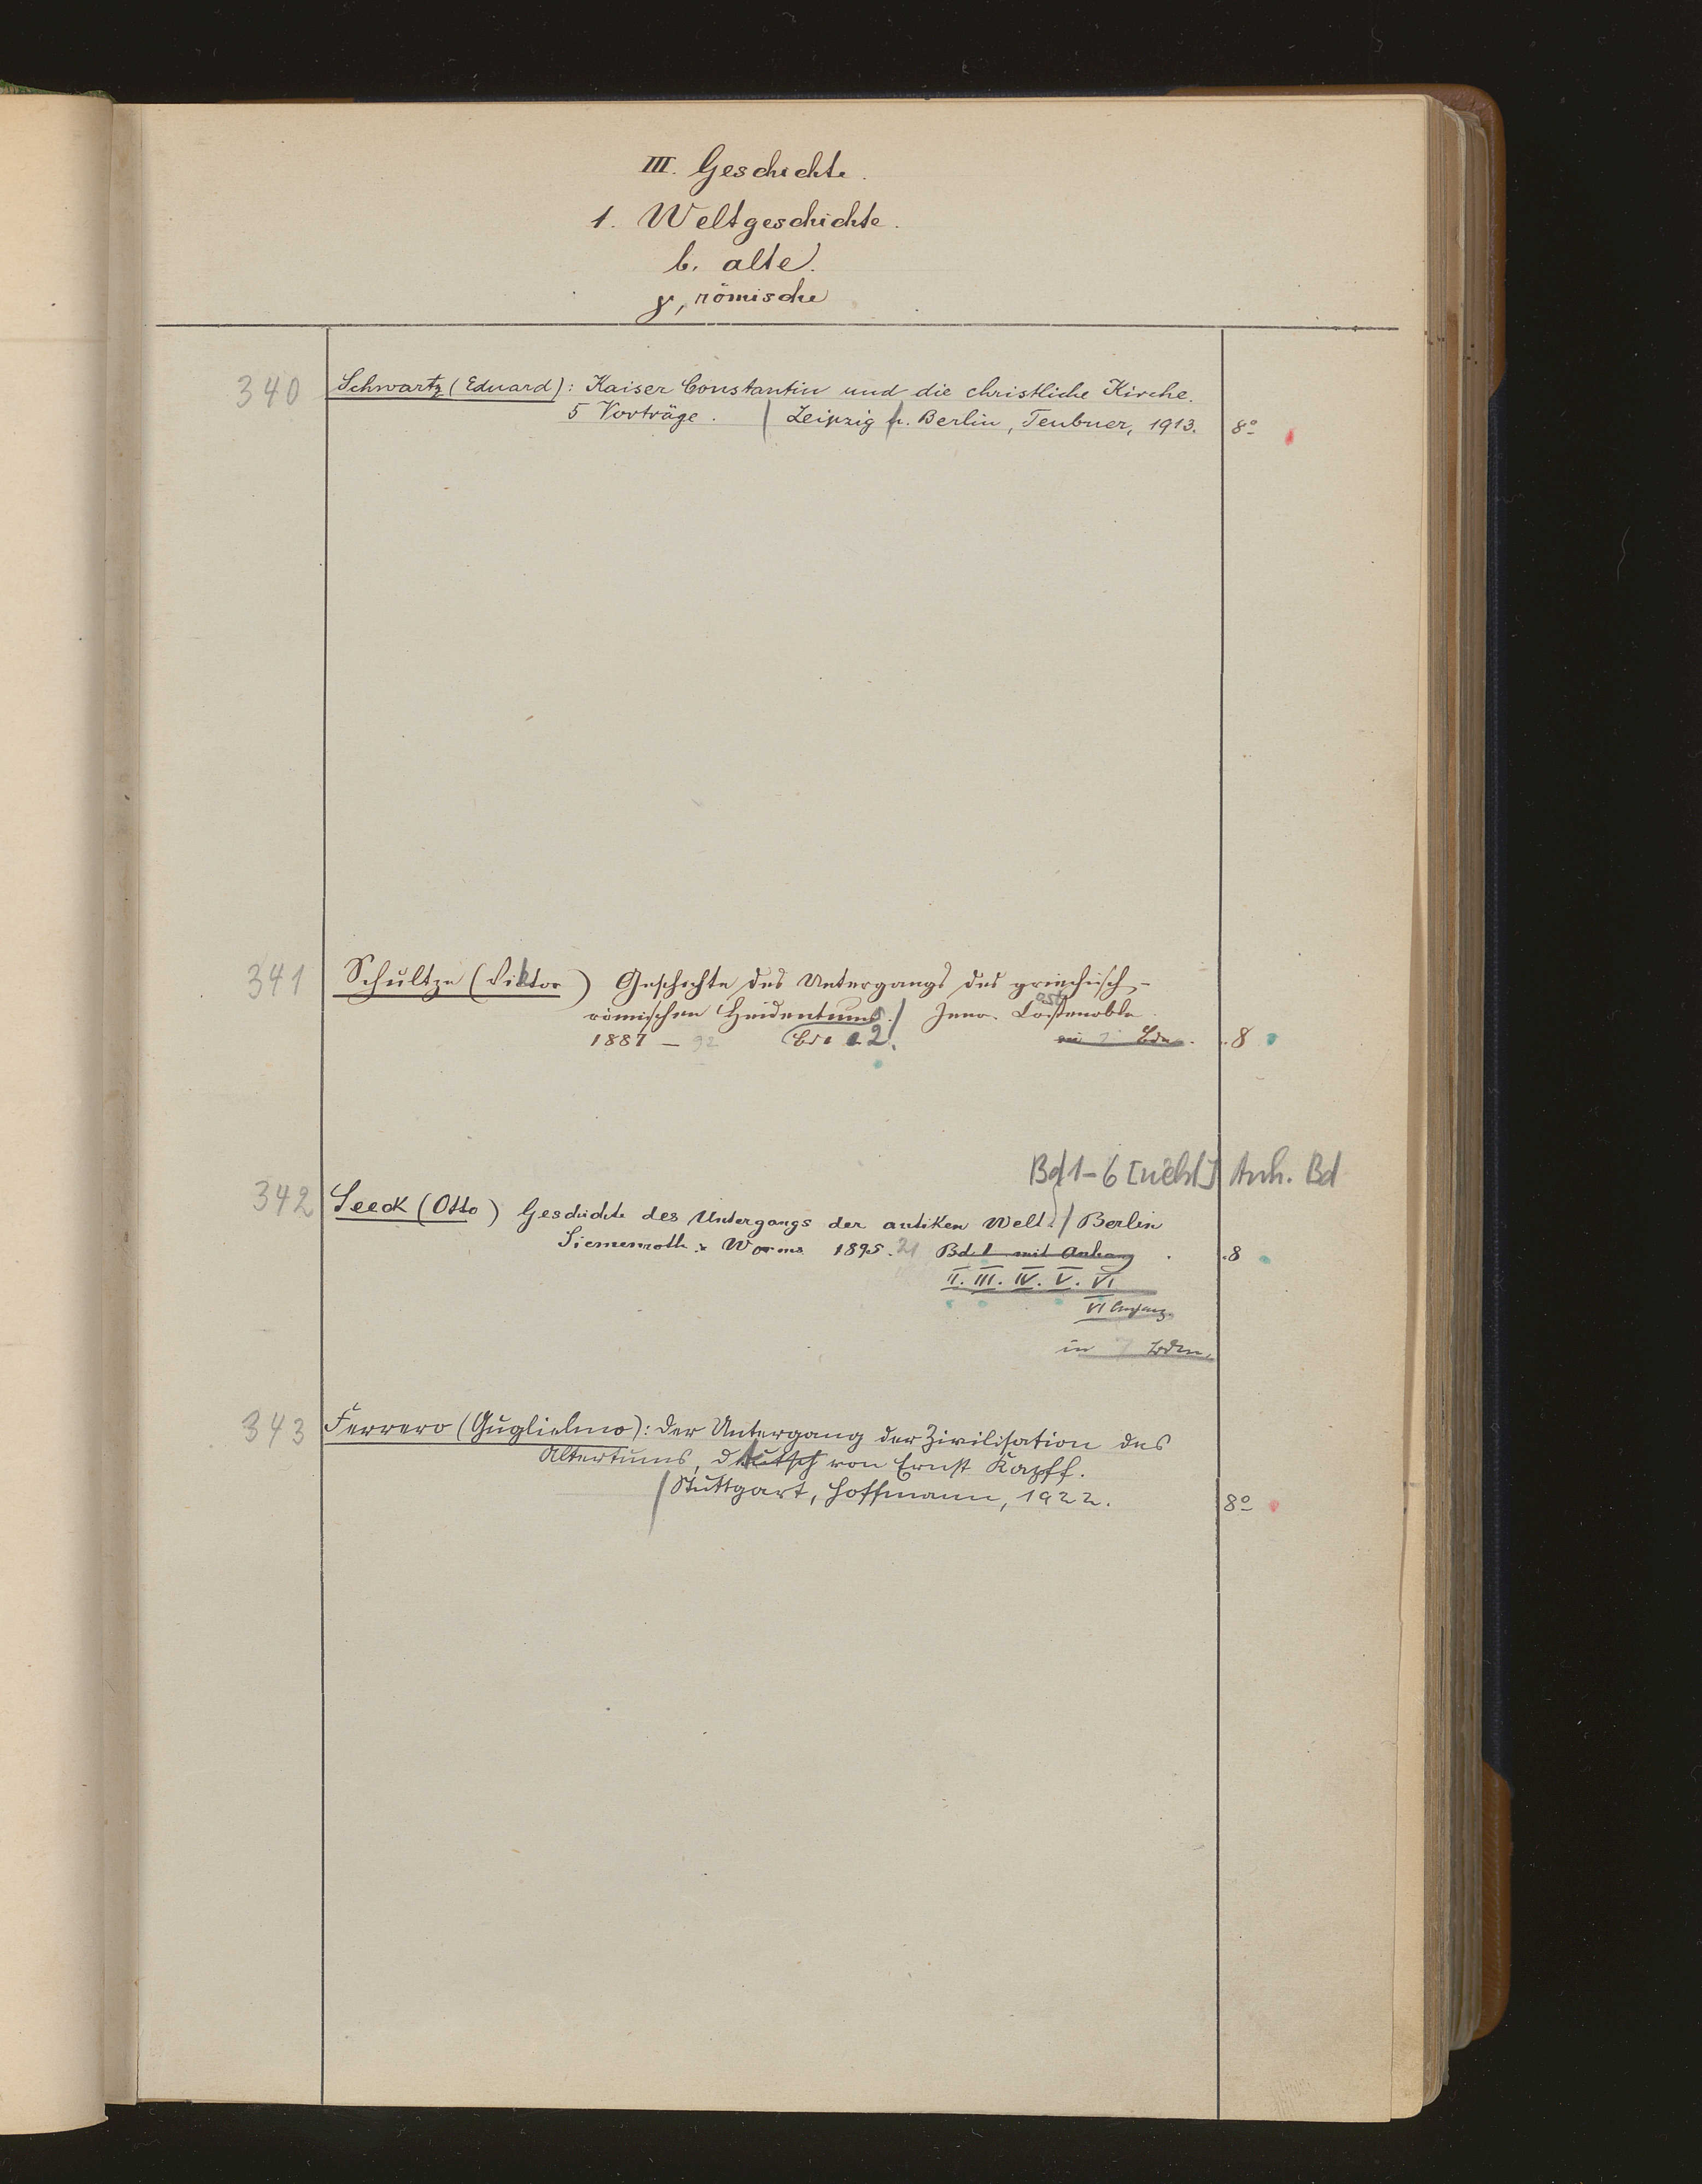 III. Geschichte.
1. Weltgeschichte.
b. alte.
γ, römische
340 Schwartz (Eduard): Kaiser Constantin und die christliche Kirche.
5 Vorträge. / Leipzig u. Berlin, Teubner, 1913. 8°
341 Schultze (Viktor) Geschichte des Untergangs des griechisch-
römischen Heidentums. / Jena. Costenoble.
ost
1887 – 92 Bde 1. 2. in 2 Bdn. 8
Bd 1-6 [nicht] Anh. Bd
342 Seeck (Otto) Geschichte des Untergangs der antiken Welt. / Berlin
Siemenroth & Worms 1895. 21 Bd. 1 mit Anhang. 8
II. III. IV. V. VI
VI Anhang
in 7 Bdn.
343 Ferrero (Guglielmo): Der Untergang der Zivilisation des
Altertums, deutsch von Ernst Kapff.
/ Stuttgart, Hoffmann, 1922. 8°